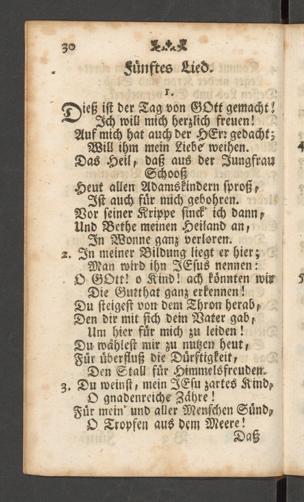 30
Fünftes Lied.
1.
Dieß ist der Tag von GOtt gemacht!
Ich will mich herzlich freuen!
Auf mich hat auch der HErr gedacht;
Will ihm mein Liebe weihen.
Das Heil, daß aus der Jungfrau
Schooß
Heut allen Adamskindern sproß,
Ist auch für mich gebohren.
Vor seiner Krippe sinck' ich dann,
Und Bethe meinen Heiland an,
In Wonne ganz verloren.
2. In meiner Bildung liegt er hier;
Man wird ihn JEsus nennen:
O GOtt! o Kind! ach könnten wir
Die Gutthat ganz erkennen!
Du steigest von dem Thron herab,
Den dir mit sich dein Vater gab,
Um hier für mich zu leiden!
Du wählest mir zu nutzen heut,
Für überfluß die Dürftigkeit,
Den Stall für Himmelsfreuden.
3. Du weinst, mein JEsu zartes Kind,
O gnadenreiche Zähre!
Für mein' und aller Menschen Sünd,
O Tropfen aus dem Meere!
Daß
4
5